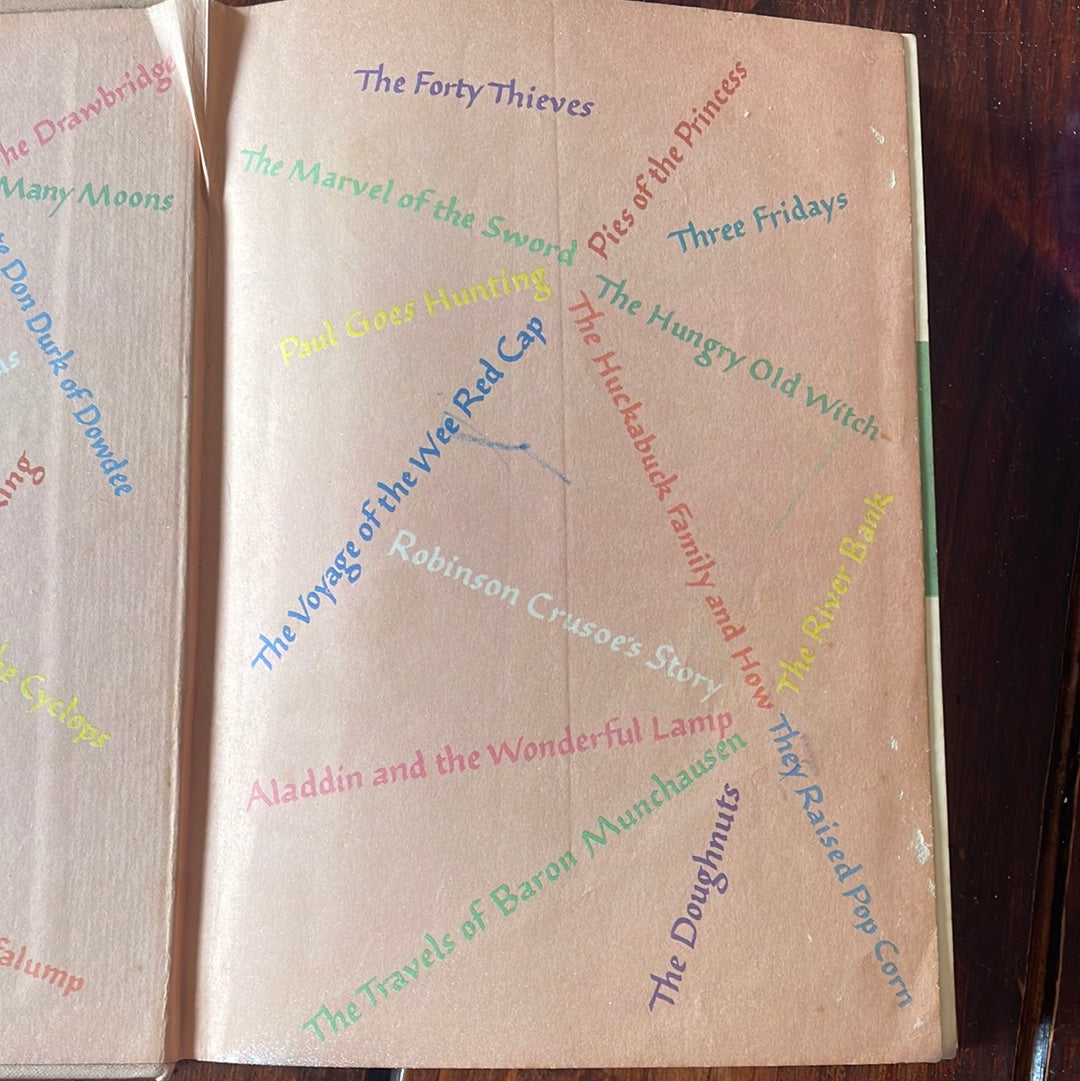 he Drawbridge
Many Moons
Don Durk of Dowdee
King
Cyclops
falump
The Forty Thieves
Pies of the Princess
The Marvel of the Sword
Three Fridays
Paul Goes Hunting
The Hungry Old Witch
The Voyage of the Wee Red Cap
The Huckabuck Family and How
They Raised Pop Corn
Robinson Crusoe's Story
The River Bank
Aladdin and the Wonderful Lamp
The Travels of Baron Munchausen
The Doughnuts